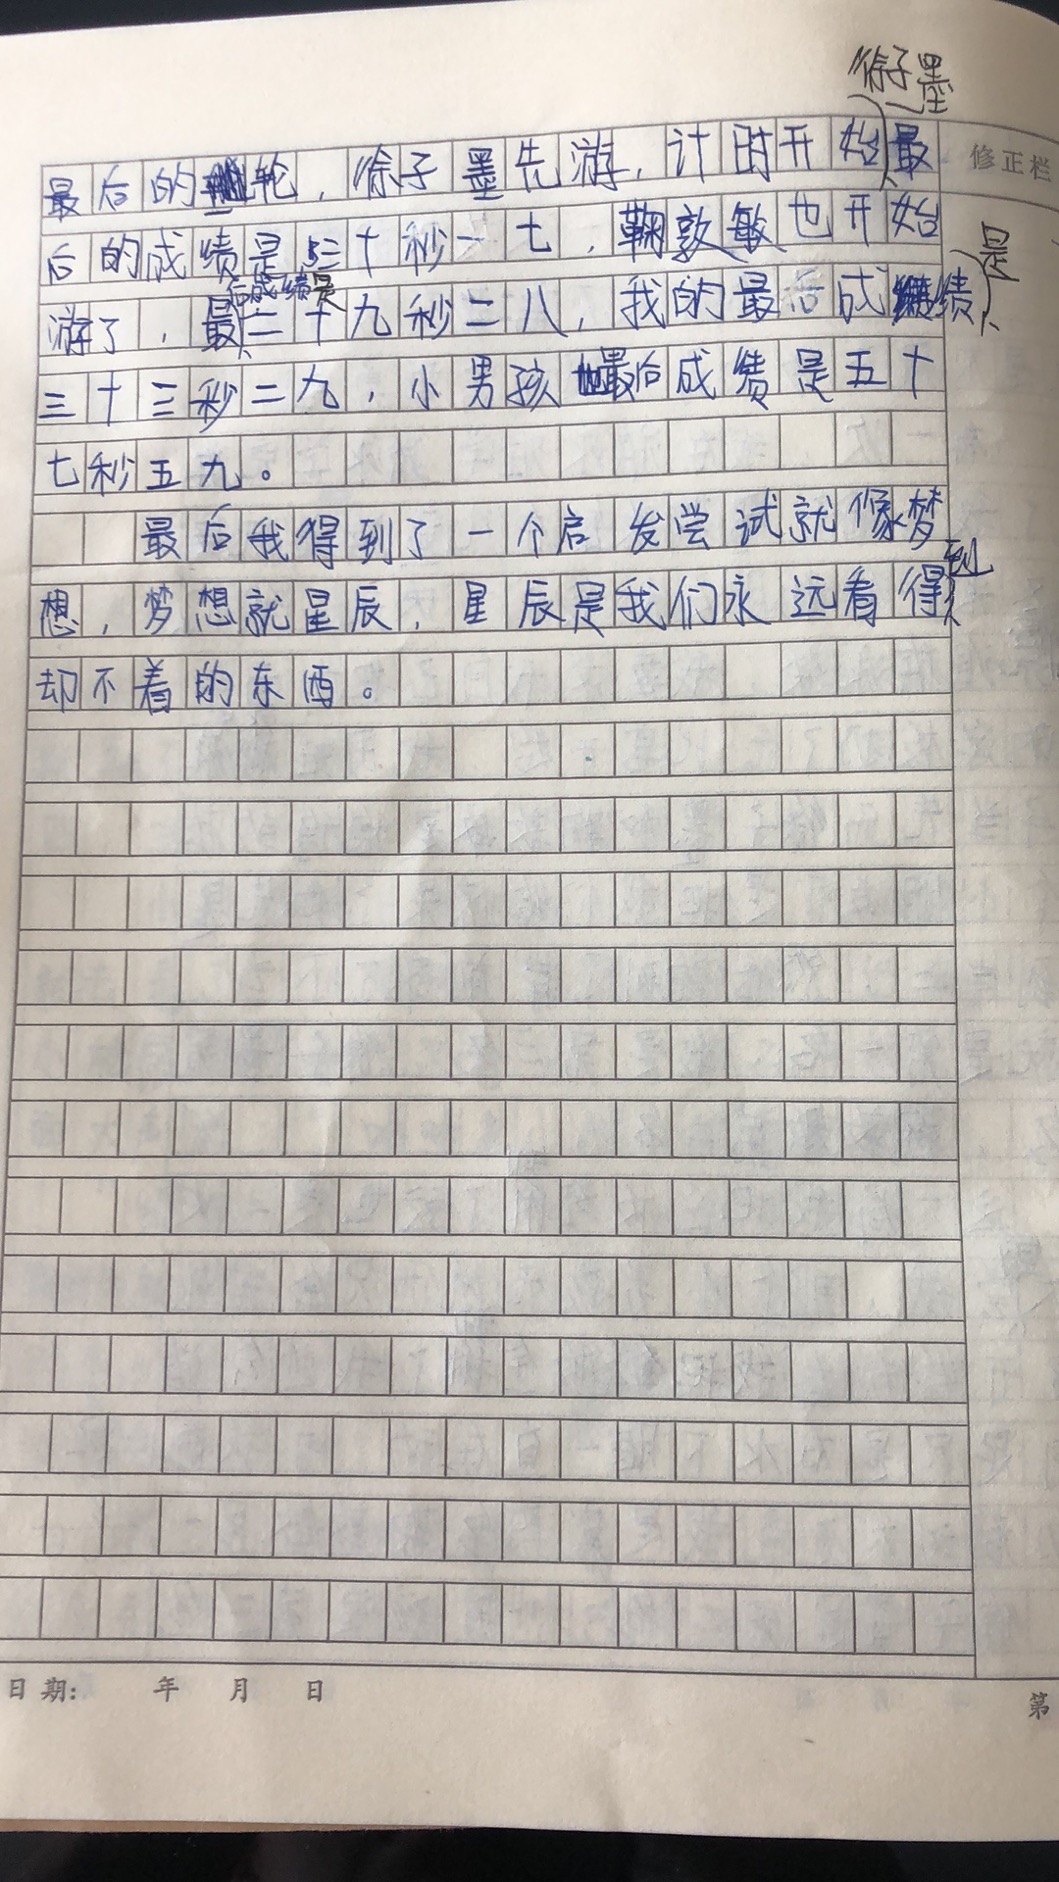 徐子墨
最后的轮，徐子墨先游，计时开始最
修正栏
后的成绩是三十秒一七，鞠敦敏也开始
是
后成绩是
游了，最二十九秒二八，我的最后成绩
三十三秒二九，小男孩最后成绩是五十
七秒五九。
最后我得到了一个启发尝试就像梦
到
想，梦想就星辰，星辰是我们永远看得
却不着的东西。
日期： 年 月 日
第